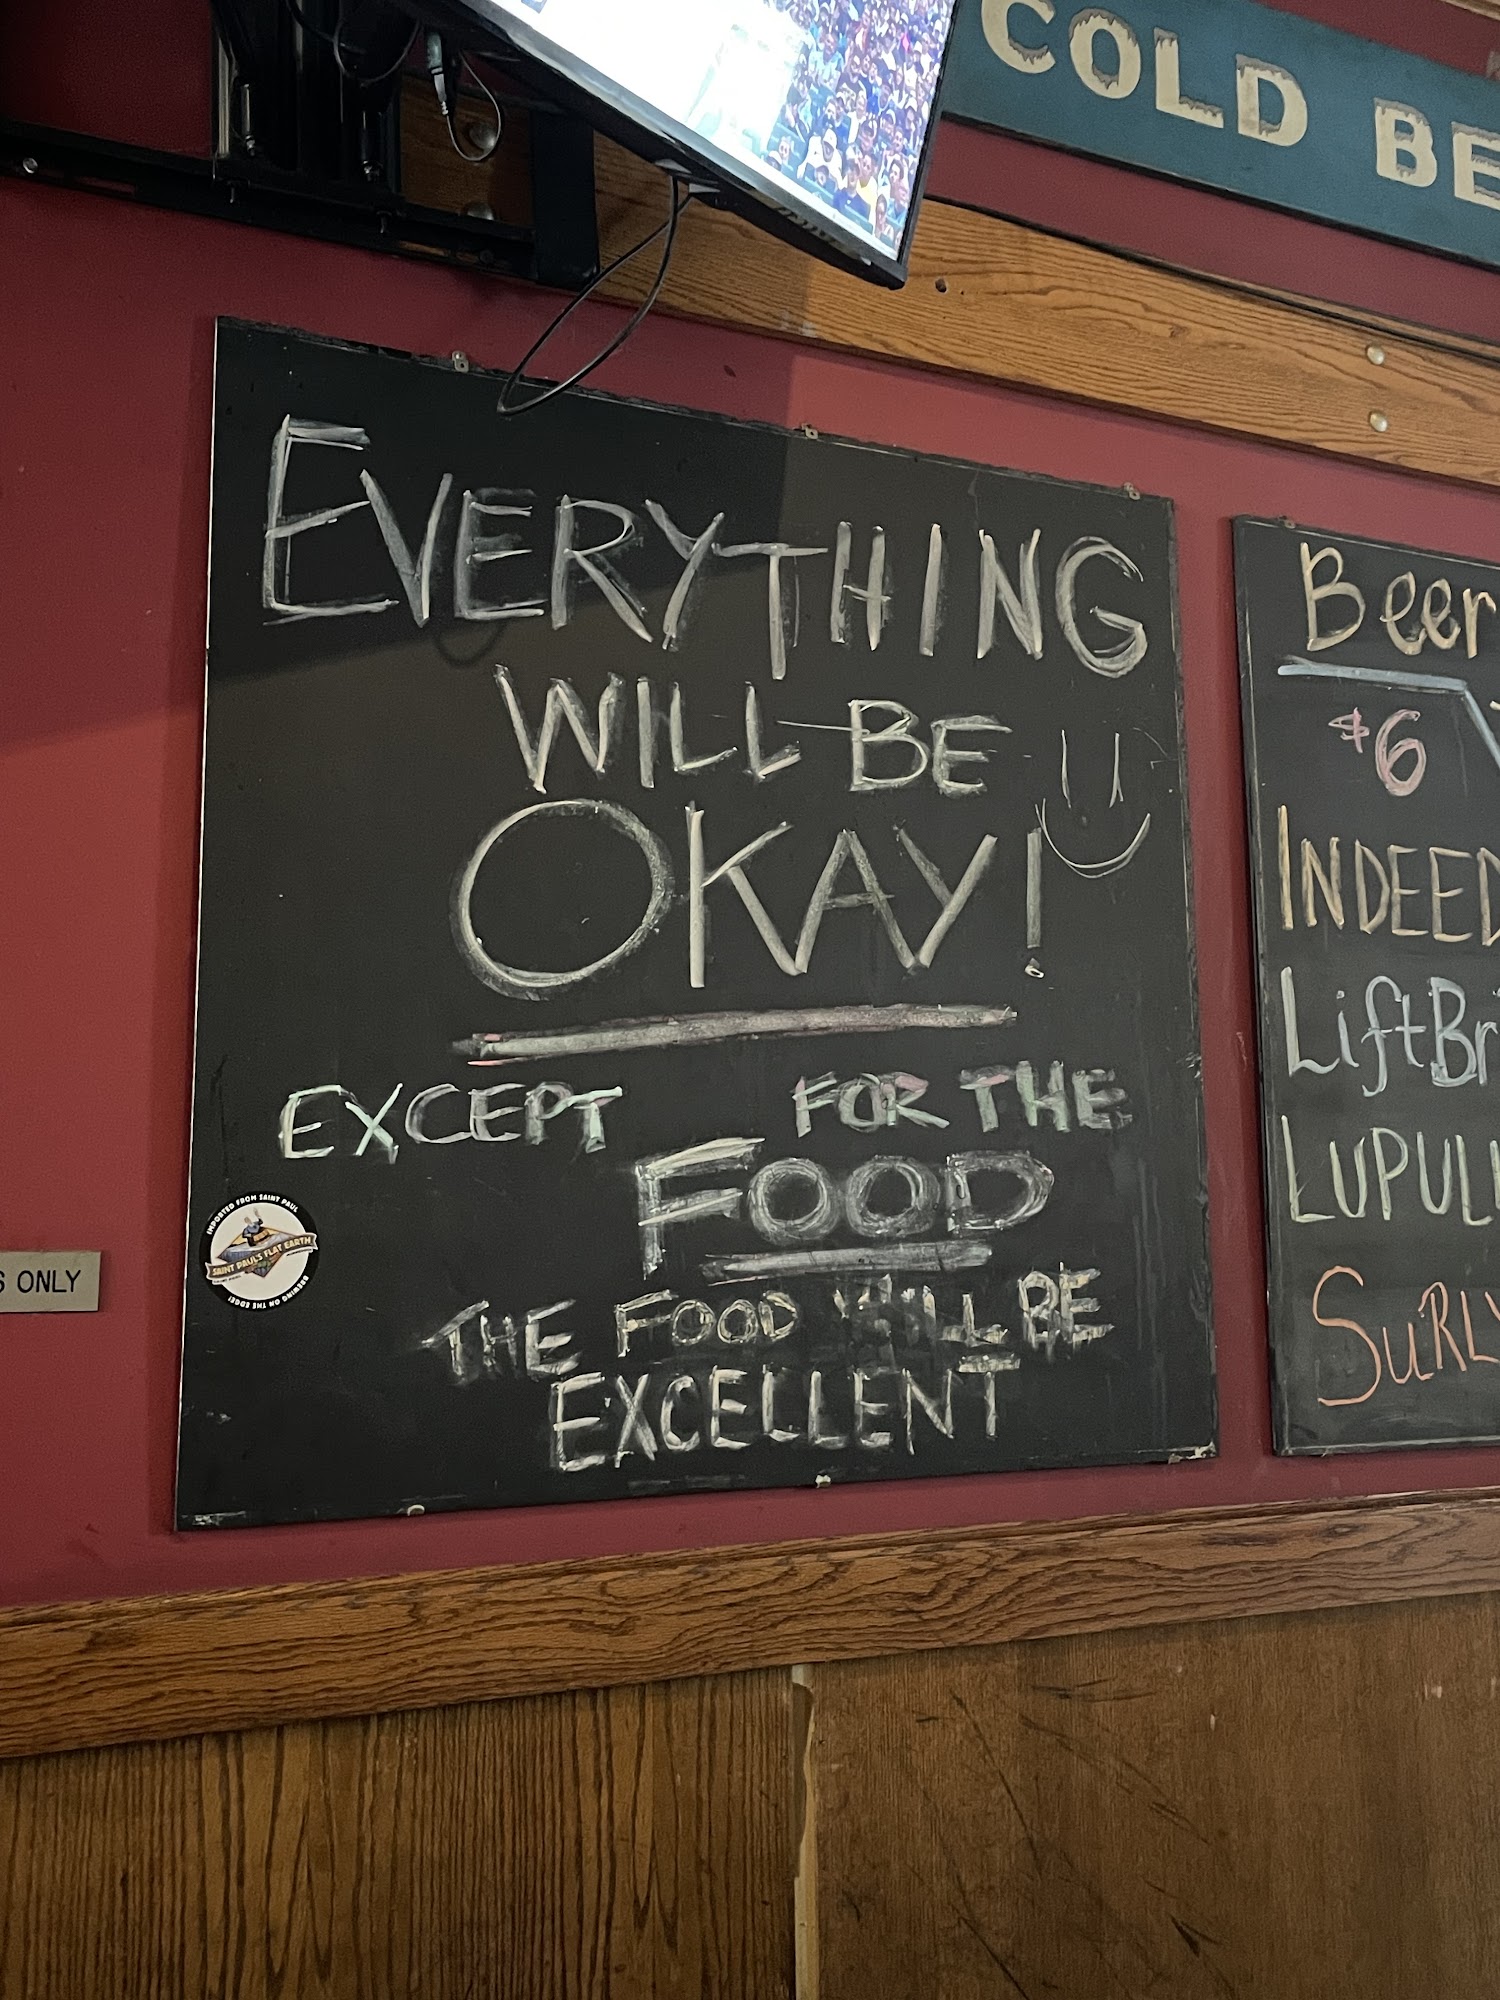 COLD BE
EVERYTHING
WILL BE
OKAY!
EXCEPT FOR THE
FOOD
THE FOOD WILL BE
EXCELLENT
IMPORTED FROM SAINT PAUL
SAINT PAUL'S FLAT EARTH
BREWING ON THE EDGE!
S ONLY
Beer
$6
INDEED
LiftBr
LUPUL
SURLY